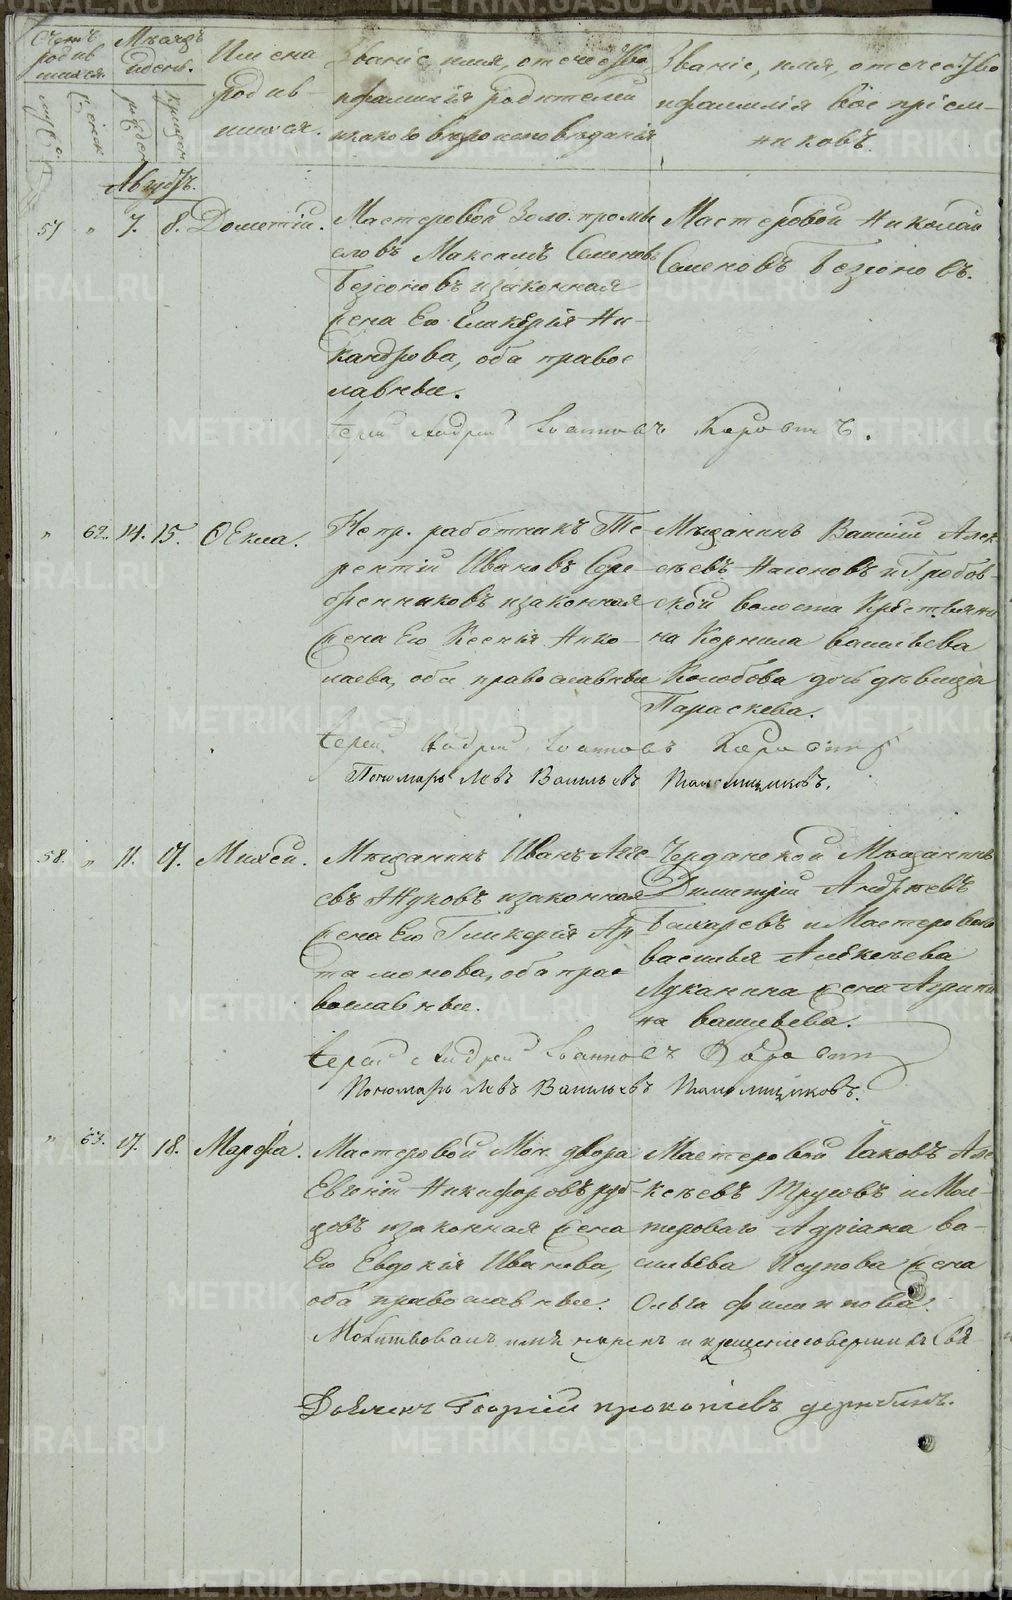 Счетъ родив шихся.
Мѣсяцъ и день.
Имена родив- шихся.
Званіе, имя, отчество и фамилія родителей и какого вѣроисповѣданія
Званіе, имя, отчество и фамилія воспріем- никовъ.
Августъ.
57 " 7. 8. Дометій.
Мастеровой Золо. промы
словъ Максимъ Семеновъ
Безсоновъ и законная
жена Его Гликерія Ни-
кандрова, оба право
славные.
Мастеровой Николай
Семеновъ Безсоновъ.
Іерей Андрей Іоанновъ
" 62. 14. 15. Ѳекла.
Непр. работникъ Те
рентій Ивановъ Сере
бренниковъ и законная
жена Его Ксенія Нико-
лаева, оба православные
Мѣщанинъ Василій Алек
сѣевъ и Гробов-
ской волости Крестьяни
на Корнила Васильева
Колобова дочь дѣвица
Параскева.
Іерей Андрей Іоанновъ
Пономарь Левъ Васильевъ
58. " 11. 17. Михей.
Мѣщанинъ Иванъ
евъ Жуковъ и законная
жена Его Гликерія Ар
тамонова, оба пра
вославные.
Мѣщанинъ
Димитрій Андреевъ
и Мастероваго
Василья Алексѣева
Луканина жена Агрипи
на Васильева.
Іерей Андрей Іоанновъ
Пономарь Левъ Васильевъ
" 63. 17. 18. Марѳа.
Мастеровой Мон. двора
Евгеній Никифоровъ Руб
цовъ и законная жена
Его Евдокія Иванова,
оба православные.
Мастеровой Іаковъ Але
ксѣевъ Трусовъ и Мас-
тероваго Адріана Ва-
сильева жена
Ольга Филиппова.
Молитвовалъ имя нарекъ и крещеніе совершилъ Свя
Дьячекъ Георгій Прокопіевъ
METRIKI.GASO-URAL.RU